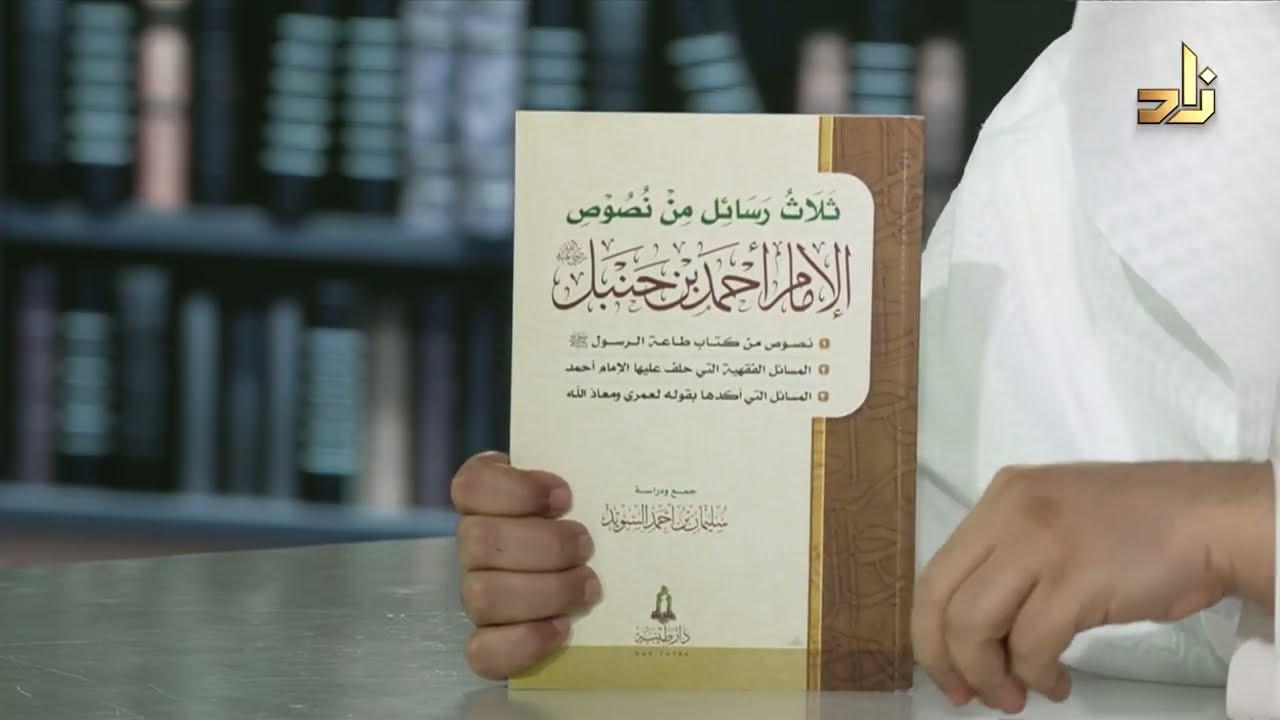 زاد
ثَلَاثُ رَسَائِل مِنْ نُصُوْصِ
الإمام أحمد بن حنبل رضي الله عنه
١ نصوص من كتاب طاعة الرسول ﷺ
٢ المسائل الفقهية التي حلف عليها الإمام أحمد
٣ المسائل التي أكدها بقوله لعمري ومعاذ الله
جمع ودراسة
سليمان بن أحمد السويد
دار طيبة
DAR TAIBA